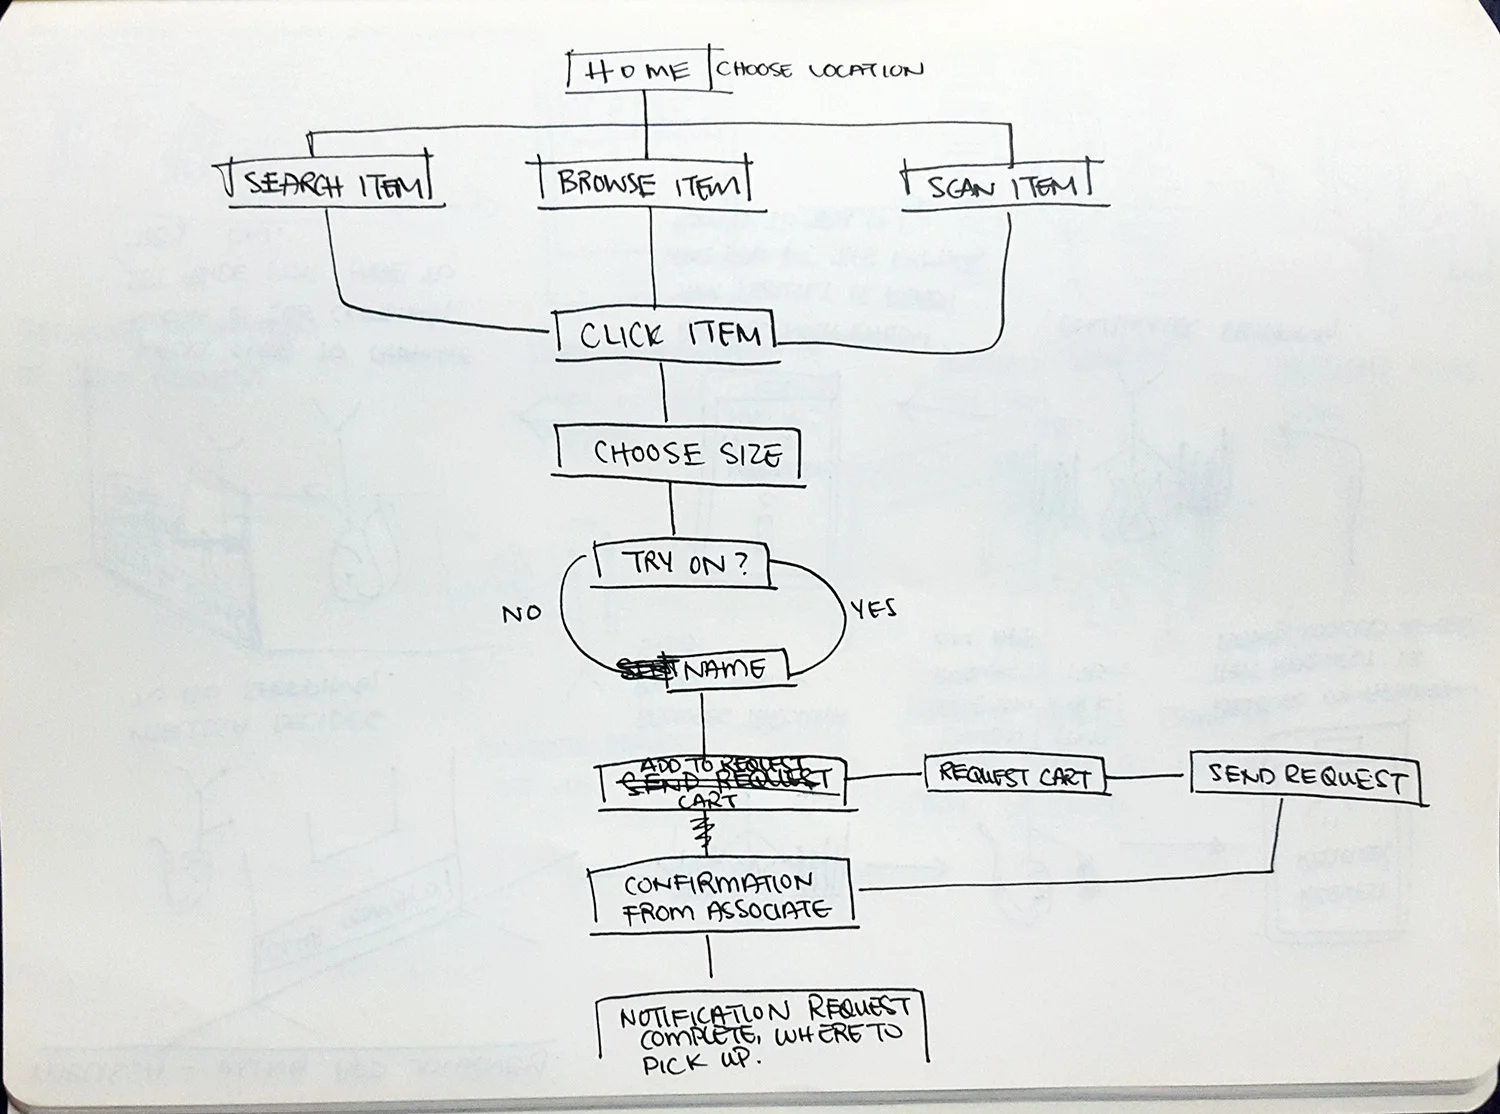 HOME CHOOSE LOCATION
SEARCH ITEM
BROWSE ITEM
SCAN ITEM
CLICK ITEM
CHOOSE SIZE
TRY ON?
NO
YES
NAME
ADD TO REQUEST
SEND REQUEST
CART
REQUEST CART
SEND REQUEST
CONFIRMATION
FROM ASSOCIATE
NOTIFICATION REQUEST
COMPLETE, WHERE TO
PICK UP.